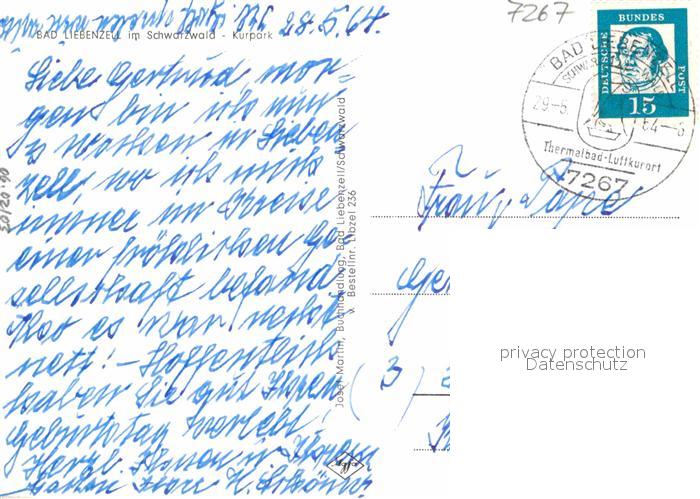 7267
28.5.64.
BAD LIEBENZELL im Schwarzwald - Kurpark
Liebe Gertrud mor-
gen bin ich nun
3 Wochen in Lieben
zell, wo ich mich
immer im Kreise
einer fröhlichen Ge-
sellschaft befand
Also es war recht
nett! - Hoffentlich
haben Sie gut Ihren
Geburtstag verlebt.
Herzl.
Josef Martin, Buchhandlung, Bad Liebenzell/Schwarzwald
Bestellnr. Libzel 236
DEUTSCHE BUNDES POST
15
BAD LIEBENZELL
29-5. 64-6
Thermalbad-Luftkurort
7267
Frau
Ge
(3)
privacy protection
Datenschutz